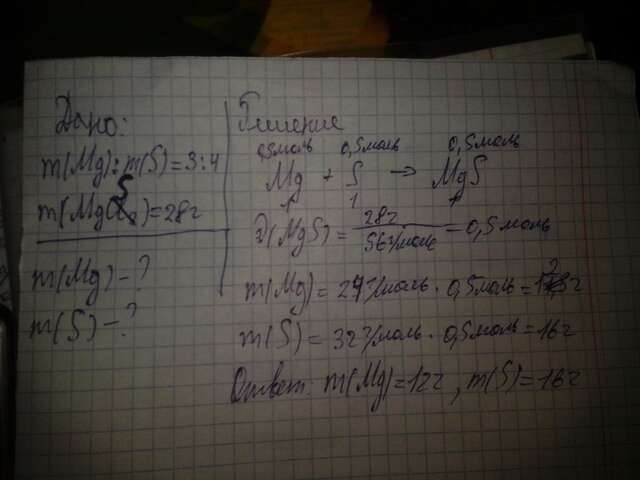 Дано:
m(Mg):m(S)=3:4
m(MgS)=28г
m(Mg)-?
m(S)-?
Решение
0,5моль 0,5моль 0,5моль
Mg + S → MgS
1 1 1
ν(MgS)= 28г / 56г/моль =0,5моль
m(Mg)=24г/моль · 0,5моль=12г
m(S)=32г/моль · 0,5моль=16г
Ответ: m(Mg)=12г, m(S)=16г